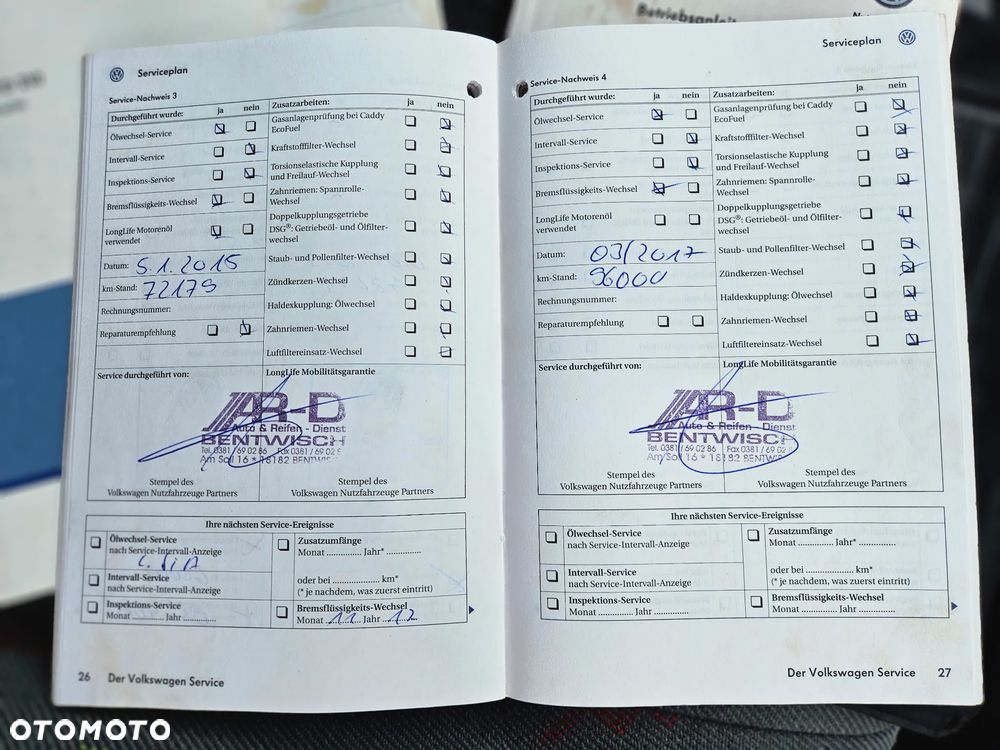 Betriebsanleit
Serviceplan
Service-Nachweis 3
Durchgeführt wurde: ja nein
Ölwechsel-Service
Intervall-Service
Inspektions-Service
Bremsflüssigkeits-Wechsel
LongLife Motorenöl
verwendet
Datum: 5.1.2015
km-Stand: 72179
Rechnungsnummer:
Reparaturempfehlung
Zusatzarbeiten: ja nein
Gasanlagenprüfung bei Caddy
EcoFuel
Kraftstofffilter-Wechsel
Torsionselastische Kupplung
und Freilauf-Wechsel
Zahnriemen: Spannrolle-
Wechsel
Doppelkupplungsgetriebe
DSG®: Getriebeöl- und Ölfilter-
wechsel
Staub- und Pollenfilter-Wechsel
Zündkerzen-Wechsel
Haldexkupplung: Ölwechsel
Zahnriemen-Wechsel
Luftfiltereinsatz-Wechsel
Service durchgeführt von:
LongLife Mobilitätsgarantie
AR-D
Auto & Reifen - Dienst
BENTWISCH
Tel. 0381 / 69 02 86 Fax 0381 / 69 02
Am Soll 16 * 18182 BENTWIS
Stempel des
Volkswagen Nutzfahrzeuge Partners
Stempel des
Volkswagen Nutzfahrzeuge Partners
Ihre nächsten Service-Ereignisse
Ölwechsel-Service
nach Service-Intervall-Anzeige
Intervall-Service
nach Service-Intervall-Anzeige
Inspektions-Service
Monat .............. Jahr ..............
Zusatzumfänge
Monat .............. Jahr* ..............
oder bei ..................... km*
(* je nachdem, was zuerst eintritt)
Bremsflüssigkeits-Wechsel
Monat 11 Jahr 12
26 Der Volkswagen Service
Serviceplan
Service-Nachweis 4
Durchgeführt wurde: ja nein
Ölwechsel-Service
Intervall-Service
Inspektions-Service
Bremsflüssigkeits-Wechsel
LongLife Motorenöl
verwendet
Datum: 03/2017
km-Stand: 96000
Rechnungsnummer:
Reparaturempfehlung
Zusatzarbeiten: ja nein
Gasanlagenprüfung bei Caddy
EcoFuel
Kraftstofffilter-Wechsel
Torsionselastische Kupplung
und Freilauf-Wechsel
Zahnriemen: Spannrolle-
Wechsel
Doppelkupplungsgetriebe
DSG®: Getriebeöl- und Ölfilter-
wechsel
Staub- und Pollenfilter-Wechsel
Zündkerzen-Wechsel
Haldexkupplung: Ölwechsel
Zahnriemen-Wechsel
Luftfiltereinsatz-Wechsel
Service durchgeführt von:
LongLife Mobilitätsgarantie
AR-D
Auto & Reifen - Dienst
BENTWISCH
Tel. 0381 / 69 02 86 Fax 0381 / 69 02
Am Soll 16 * 18182 BENTWIS
Stempel des
Volkswagen Nutzfahrzeuge Partners
Stempel des
Volkswagen Nutzfahrzeuge Partners
Ihre nächsten Service-Ereignisse
Ölwechsel-Service
nach Service-Intervall-Anzeige
Intervall-Service
nach Service-Intervall-Anzeige
Inspektions-Service
Monat .............. Jahr ..............
Zusatzumfänge
Monat .............. Jahr* ..............
oder bei ..................... km*
(* je nachdem, was zuerst eintritt)
Bremsflüssigkeits-Wechsel
Monat .............. Jahr ..............
Der Volkswagen Service 27
OTOMOTO